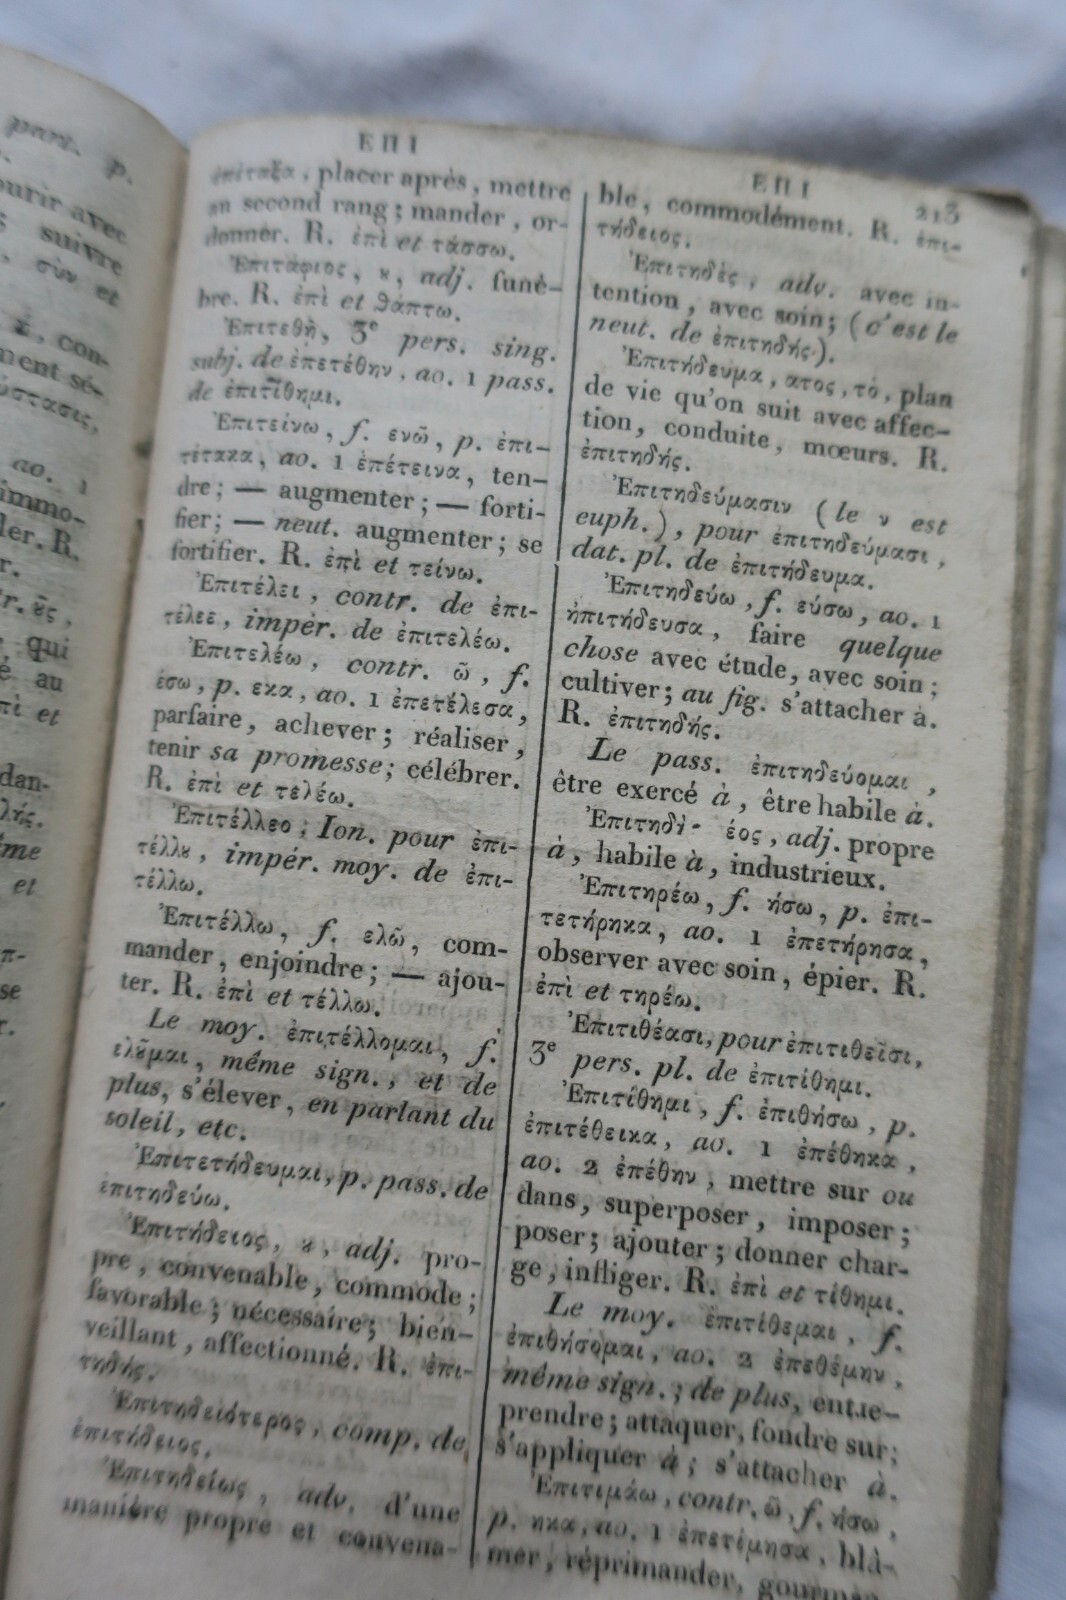 part. p.
ourir avec
suivre
σὺν et
con-
ment sé-
ύστασις,
ao. 1
immo-
ler. R.
r.
qui
é au
πὶ et
dan-
λής.
me
et
π-
se
r.
ΕΠΙ
ἐπίταξα, placer après, mettre
au second rang; mander, or-
donner. R. ἐπὶ et τάσσω.
Ἐπιτάφιος, ȣ, adj. funè-
bre. R. ἐπὶ et ϑάπτω.
Ἐπιτεθῇ, 3e pers. sing.
subj. de ἐπετέθην, ao. 1 pass.
de ἐπιτίθημι.
Ἐπιτείνω, f. ενῶ, p. ἐπι-
τέτακα, ao. 1 ἐπέτεινα, ten-
dre; — augmenter; — forti-
fier; — neut. augmenter; se
fortifier. R. ἐπὶ et τείνω.
Ἐπιτέλει, contr. de ἐπι-
τέλεε, impér. de ἐπιτελέω.
Ἐπιτελέω, contr. ῶ, f.
έσω, p. εκα, ao. 1 ἐπετέλεσα,
parfaire, achever; réaliser,
tenir sa promesse; célébrer.
R. ἐπὶ et τελέω.
Ἐπιτέλλεο; Ion. pour ἐπι-
τέλλȣ, impér. moy. de ἐπι-
τέλλω.
Ἐπιτέλλω, f. ελῶ, com-
mander, enjoindre; — ajou-
ter. R. ἐπὶ et τέλλω.
Le moy. ἐπιτέλλομαι, f.
ελȣ͂μαι, même sign., et de
plus, s'élever, en parlant du
soleil, etc.
Ἐπιτετήδευμαι, p. pass. de
ἐπιτηδεύω.
Ἐπιτήδειος, ȣ, adj. pro-
pre, convenable, commode;
favorable; nécessaire; bien-
veillant, affectionné. R. ἐπι-
τηδής.
Ἐπιτηδειότερος, comp. de
ἐπιτήδειος.
Ἐπιτηδείως, adv. d'une
manière propre et convena-
ΕΠΙ 213
ble, commodément. R. ἐπι-
τήδειος.
Ἐπιτηδὲς, adv. avec in-
tention, avec soin; (c'est le
neut. de ἐπιτηδής).
Ἐπιτήδευμα, ατος, τὸ, plan
de vie qu'on suit avec affec-
tion, conduite, mœurs. R.
ἐπιτηδής.
Ἐπιτηδεύμασιν (le ν est
euph.), pour ἐπιτηδεύμασι,
dat. pl. de ἐπιτήδευμα.
Ἐπιτηδεύω, f. εύσω, ao. 1
ἠπιτήδευσα, faire quelque
chose avec étude, avec soin;
cultiver; au fig. s'attacher à.
R. ἐπιτηδής.
Le pass. ἐπιτηδεύομαι,
être exercé à, être habile à.
Ἐπιτηδὴ- έος, adj. propre
à, habile à, industrieux.
Ἐπιτηρέω, f. ήσω, p. ἐπι-
τετήρηκα, ao. 1 ἐπετήρησα,
observer avec soin, épier. R.
ἐπὶ et τηρέω.
Ἐπιτιθέασι, pour ἐπιτιθεῖσι,
3e pers. pl. de ἐπιτίθημι.
Ἐπιτίθημι, f. ἐπιθήσω, p.
ἐπιτέθεικα, ao. 1 ἐπέθηκα,
ao. 2 ἐπέθην, mettre sur ou
dans, superposer, imposer;
poser; ajouter; donner char-
ge, infliger. R. ἐπὶ et τίθημι.
Le moy. ἐπιτίθεμαι, f.
ἐπιθήσομαι, ao. 2 ἐπεθέμην,
même sign.; de plus, entre-
prendre; attaquer, fondre sur;
s'appliquer à; s'attacher à.
Ἐπιτιμάω, contr. ῶ, f. ήσω,
p. ηκα, ao. 1 ἐπετίμησα, blâ-
mer, réprimander, gourman-